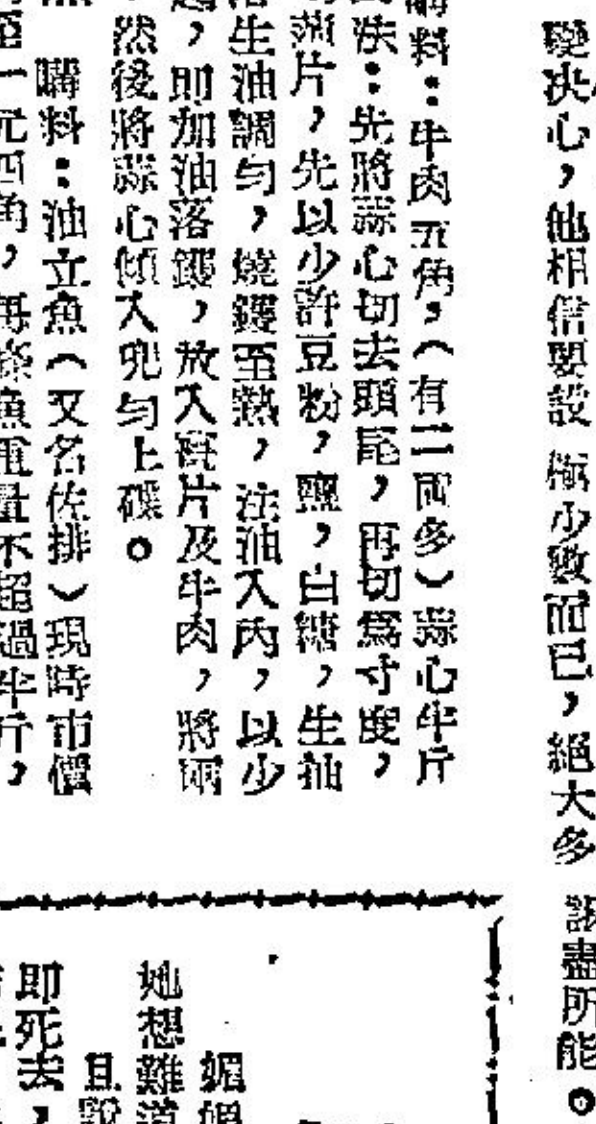 變决心，他相信要設
極少數而已，絕大多
盡所能。
料：牛肉五角，（有二両多）蒜心半斤
法：先將蒜心切去頭尾，再切爲寸度，
薄片，先以少許豆粉，鹽，白糖，生抽
生油調勻，燒鑊至熱，注油入內，以少
，即加油落鑊，放入薑片及牛肉，將兩
然後將蒜心傾入兜勻上碟。
購料：油立魚（又名佐排）現時市價
至一元四角，每條魚重量不超過半斤，
媚媚
她想難道
且說
即死去，